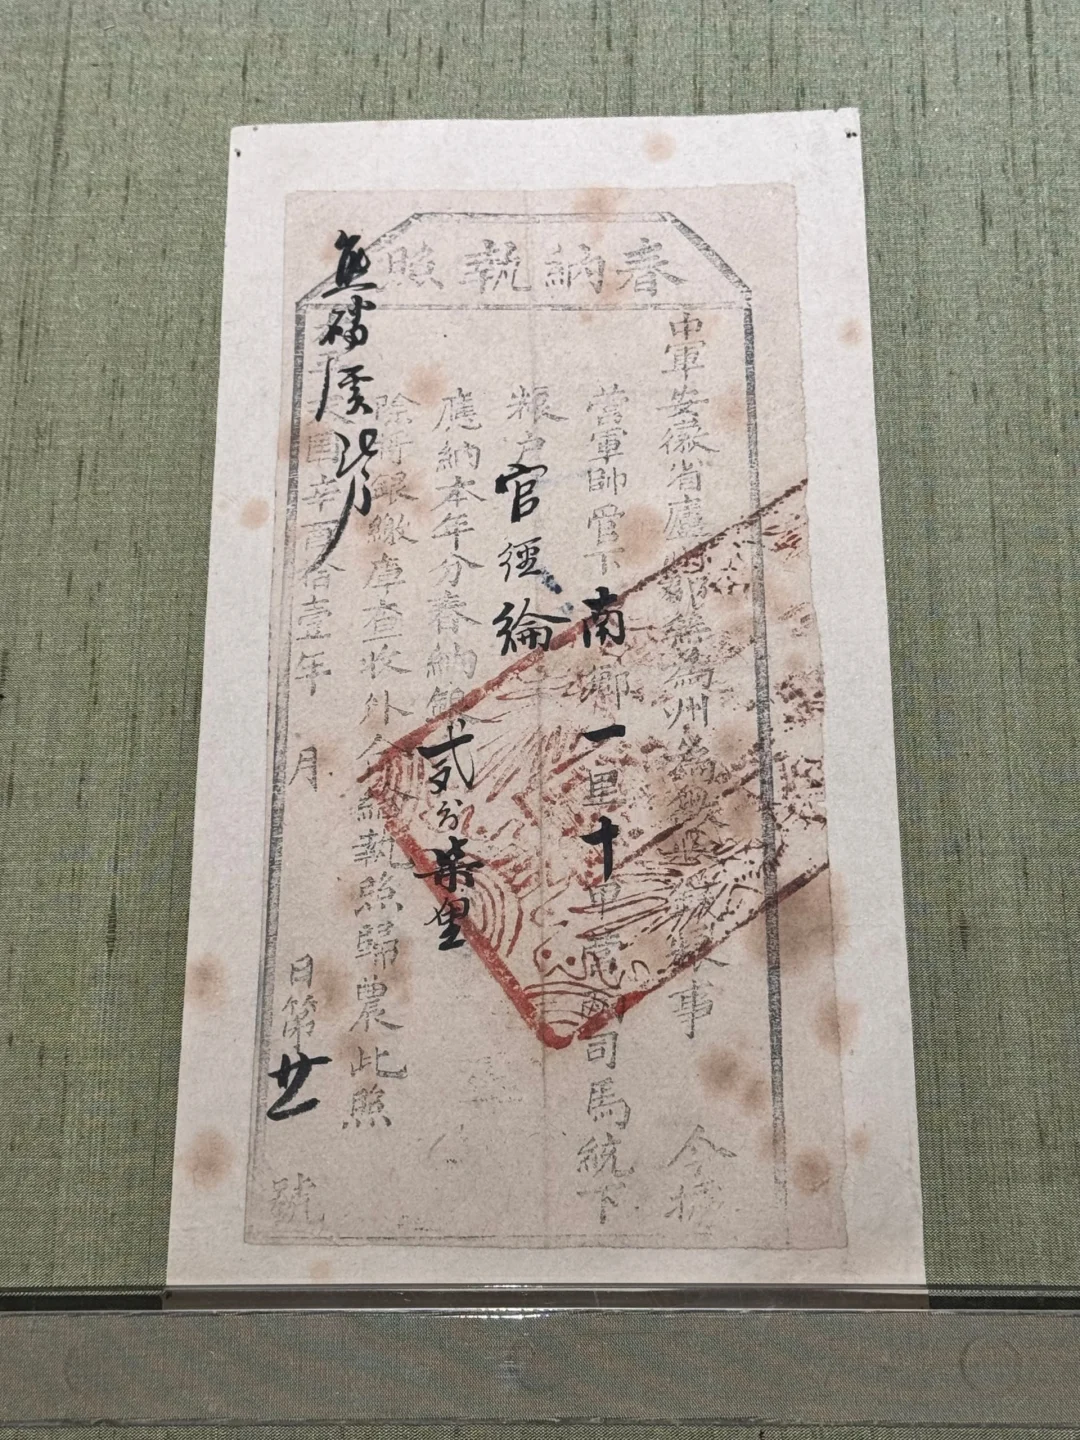 春納執照
中軍安徽省廬州郡無為州為 糧事 今據
營軍帥管下南鄉一里十甲 司馬統下
粮户官經綸
應納本年分春納銀弍分柒厘
除將銀繳庫查收外合給執照歸農此照
天國辛酉拾壹年 月 日第廿 號